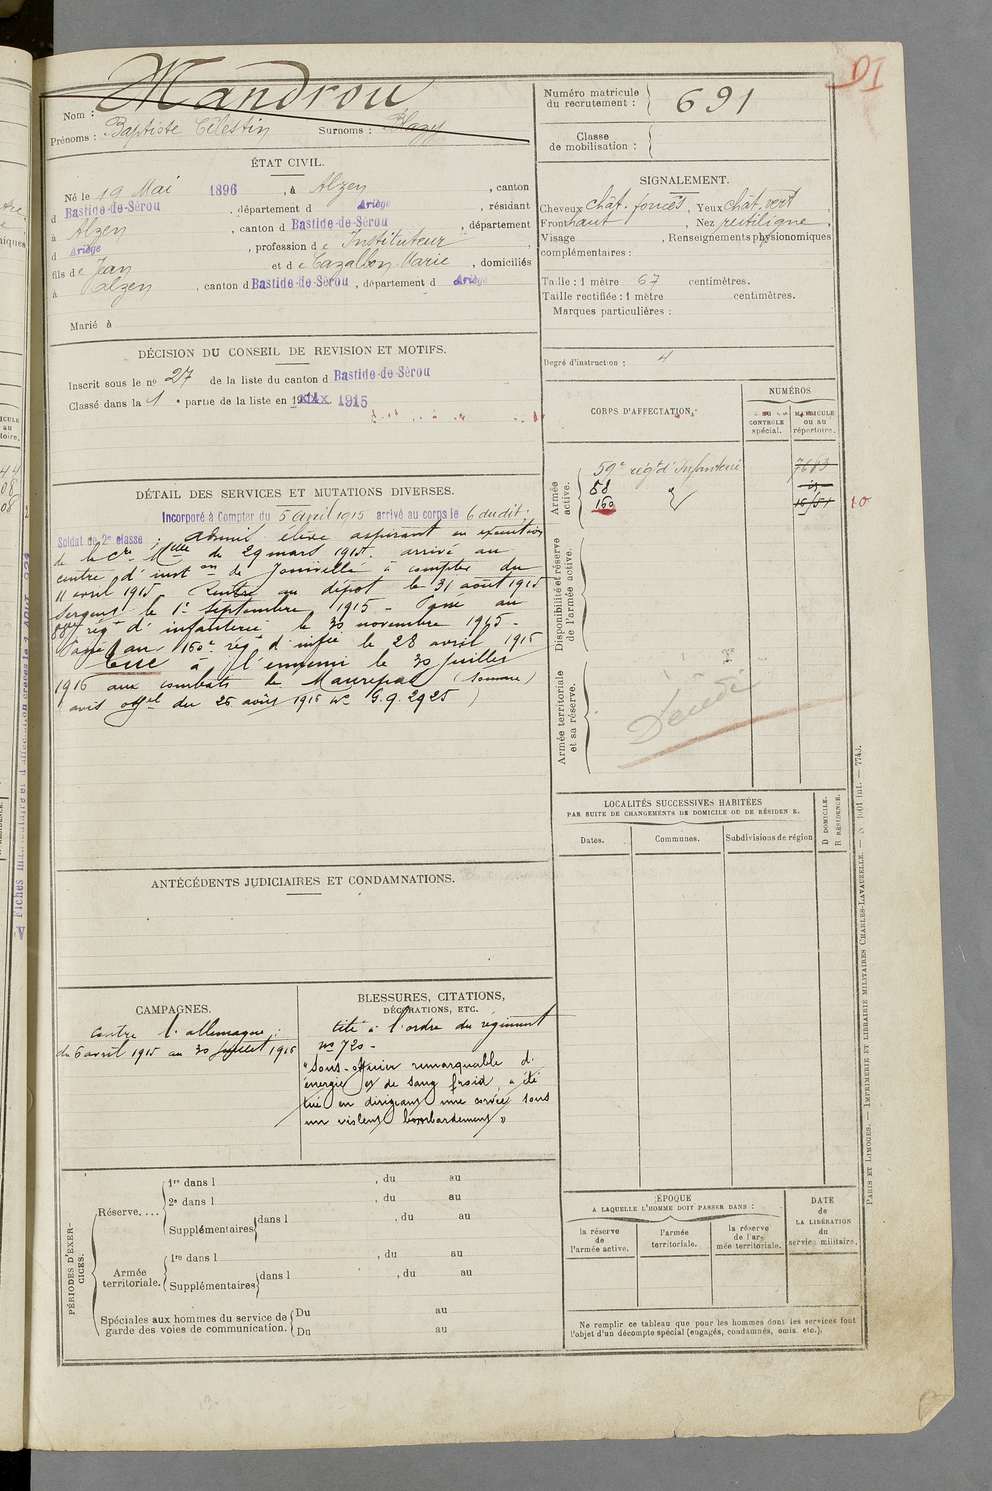 Nom : Mandrou
Prénoms : Baptiste Célestin Surnoms : Blazy
ÉTAT CIVIL.
Né le 19 Mai 1896, à Alzen, canton
d Bastide-de-Sèrou, département d Ariège, résidant
à Alzen, canton d Bastide-de-Sèrou, département
d Ariège, profession de Instituteur
fils de Jean et de Cazalbon Marie, domiciliés
à Alzen, canton d Bastide-de-Sèrou, département d Ariège
Marié à
DÉCISION DU CONSEIL DE REVISION ET MOTIFS.
Inscrit sous le no 27 de la liste du canton d Bastide-de-Sèrou
Classé dans la 1e partie de la liste en 1915
DÉTAIL DES SERVICES ET MUTATIONS DIVERSES.
Incorporé à Compter du 5 avril 1915 arrivé au corps le 6 dudit.
Soldat de 2e classe ; admis élève aspirant en exécution
de la Cre Melle du 29 mars 1915. arrivé au
centre d'instion de Joinville à compter du
11 avril 1915 Rentré au dépôt le 31 août 1915
Sergent le 1er Septembre 1915 - Passé au
88e régt d'infanterie le 30 novembre 1915 -
Passé au 160e régt d'infie le 28 avril 1916
Tué à l'ennemi le 30 Juillet
1916 aux combats de Maurepas (Somme)
avis offel du 26 août 1916 No G.g. 2925 )
ANTÉCÉDENTS JUDICIAIRES ET CONDAMNATIONS.
CAMPAGNES.
contre l'allemagne :
du 6 avril 1915 au 30 juillet 1916
BLESSURES, CITATIONS,
DÉCORATIONS, ETC.
Cité à l'ordre du régiment
no 720 -
"Sous-officier remarquable d'
énergie et de sang froid, a été
tué en dirigeant une corvée sous
un violent bombardement"
PÉRIODES D'EXERCICES.
Réserve....
1re dans l , du au
2e dans l , du au
Supplémentaires dans l , du au
Armée territoriale.
1re dans l , du au
Supplémentaires dans l , du au
Spéciales aux hommes du service de Du au
garde des voies de communication. Du au
Numéro matricule
du recrutement : 691
Classe
de mobilisation :
SIGNALEMENT.
Cheveux chât. foncés, Yeux chât. vert
Front haut, Nez rectiligne,
Visage , Renseignements physionomiques
complémentaires :
Taille : 1 mètre 67 centimètres.
Taille rectifiée : 1 mètre centimètres.
Marques particulières :
Degré d'instruction : 4
CORPS D'AFFECTATION.
NUMÉROS
AU CONTRÔLE spécial.
MATRICULE OU AU répertoire.
Armée active.
59e régt d'Infanterie 7683
88
160
10
Disponibilité et réserve de l'armée active.
Armée territoriale et sa réserve.
Décédé
LOCALITÉS SUCCESSIVES HABITÉES
PAR SUITE DE CHANGEMENTS DE DOMICILE OU DE RÉSIDENCE.
Dates. Communes. Subdivisions de région
D DOMICILE.
R RÉSIDENCE.
ÉPOQUE
A LAQUELLE L'HOMME DOIT PASSER DANS :
la réserve de l'armée active.
l'armée territoriale.
la réserve de l'armée territoriale.
DATE de LA LIBÉRATION du service militaire.
Ne remplir ce tableau que pour les hommes dont les services font
l'objet d'un décompte spécial (engagés, condamnés, omis, etc.).
PARIS ET LIMOGES. — IMPRIMERIE ET LIBRAIRIE MILITAIRES CHARLES-LAVAUZELLE.